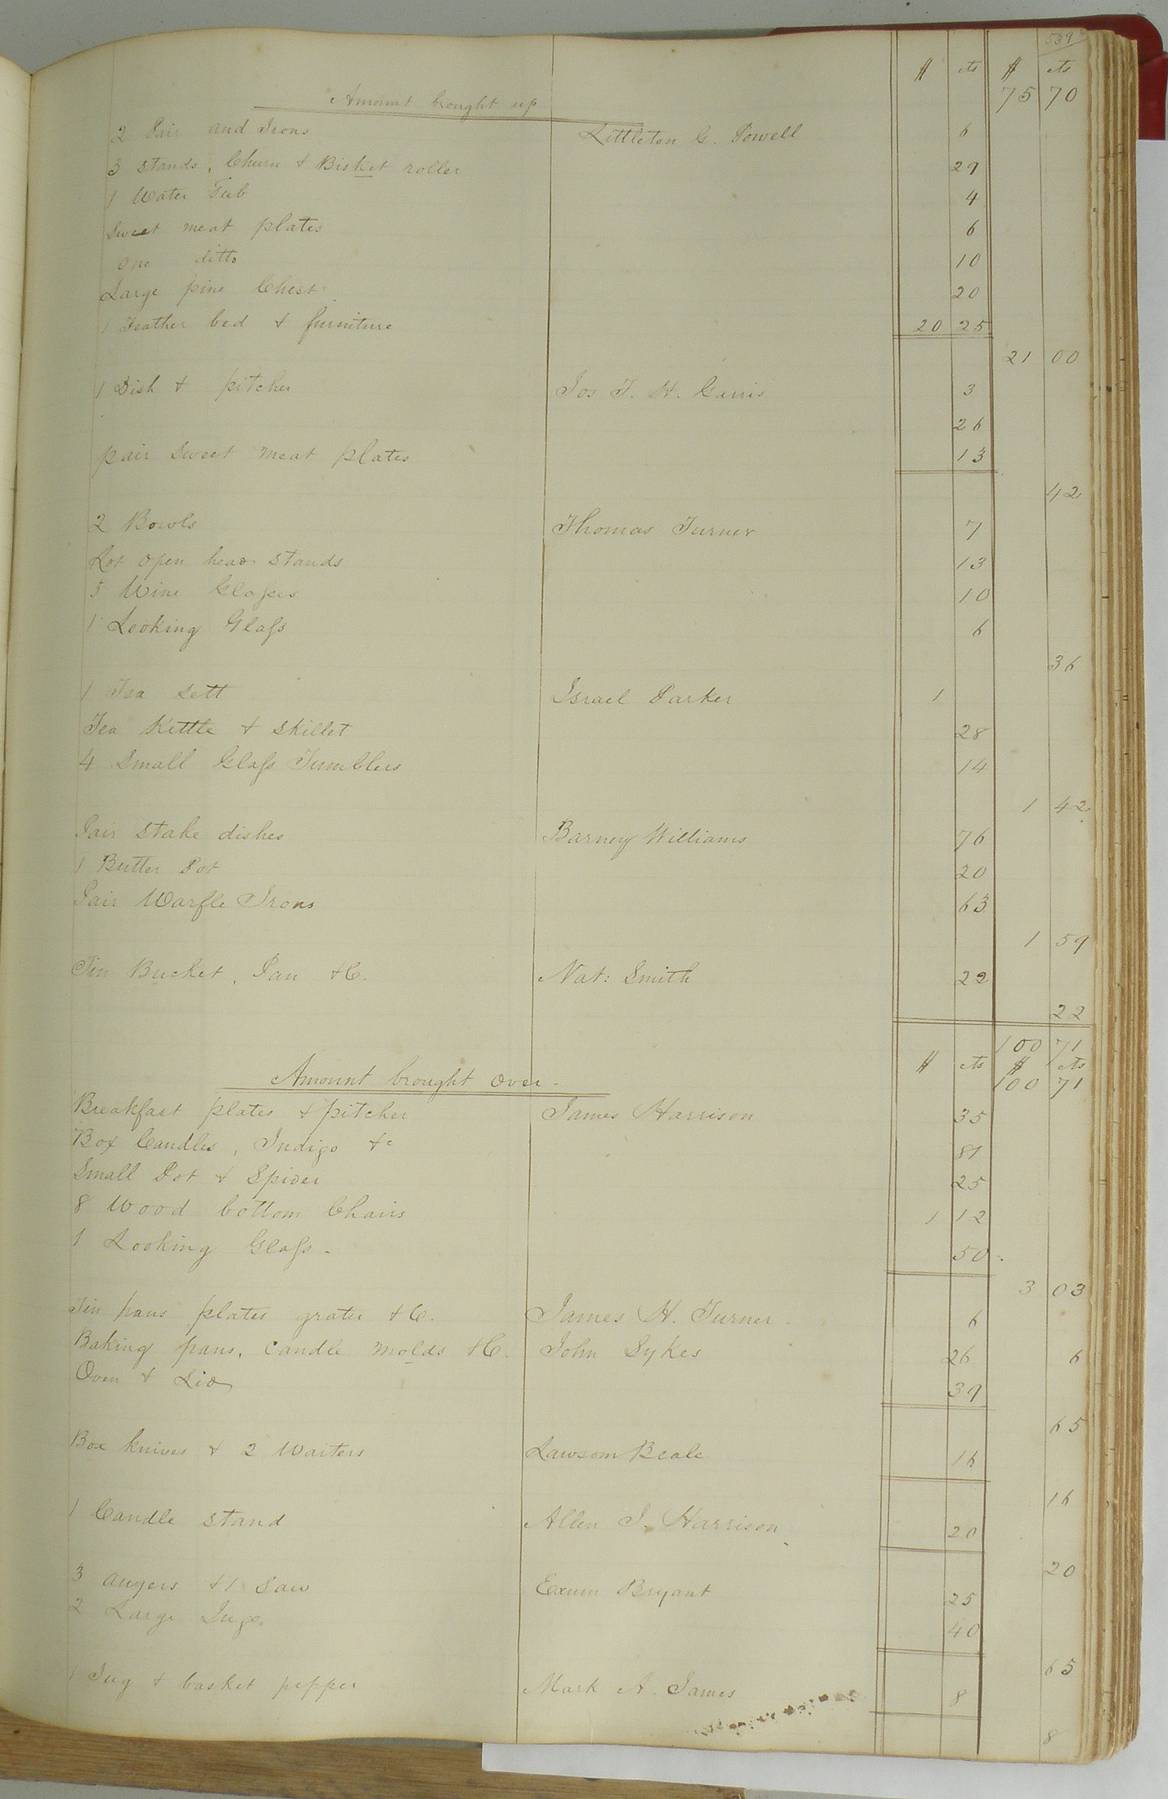 539
$ cts $ cts
Amount brought up 75 70
2 Pair and Irons Littleton C. Powell 6
3 Stands, Churn & Bisket roller 29
1 Water Tub 4
Sweet meat plates 6
One ditto 10
Large pine Chest 20
1 Feather bed & furniture 20 25
21 00
1 Dish & pitcher Jos T. H. Garris 3
26
pair Sweet meat plates 13
42
2 Bowls Thomas Turner 7
Lot open head Stands 13
5 Wine Glasses 10
1 Looking Glass 6
36
1 Tea Sett Israel Parker 1
Tea Kettle & Skillet 28
4 Small Glass Tumblers 14
1 42
Pair Stake dishes Barney Williams 76
1 Butter Pot 20
Pair Warfle Irons 63
1 59
Tin Bucket, Pan &C. Nat: Smith 22
22
100 71
$ cts $ cts
Amount brought over - 100 71
Breakfast plates & pitcher James Harrison 35
Box Candles, Indigo &c 81
Small Pot & Spider 25
8 Wood bottom Chairs 1 12
1 Looking Glass - 50
3 03
Tin pans plates grater &C. James H. Turner 6
Baking pans, Candle molds &C. John Sykes 26 6
Oven & Lid 39
65
Box knives & 2 Waiters Lawson Beale 16
16
1 Candle Stand Allen J. Harrison 20
20
3 augers & 1 Saw Exum Bryant 25
2 Large Jugs 40
65
1 Jug & basket pepper Mark A. James 8
8